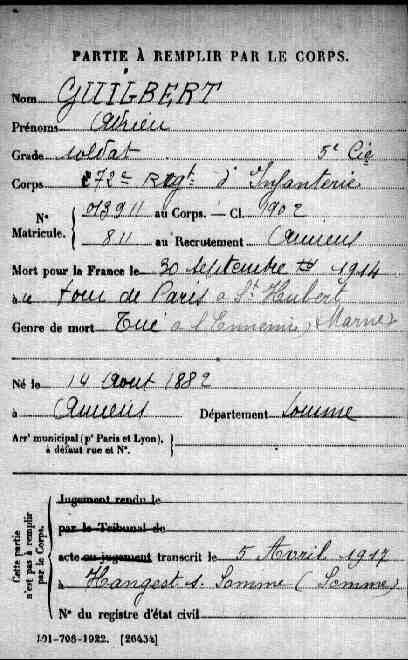 PARTIE À REMPLIR PAR LE CORPS.
Nom GUILBERT
Prénoms Adrien
Grade soldat 5e Cie
Corps 272e Regt d'Infanterie
N° Matricule. 013911 au Corps. — Cl. 1902
811 au Recrutement Amiens
Mort pour la France le 30 Septembre 1914
à four de Paris à St Hubert
Genre de mort Tué à l'Ennemi (Marne)
Né le 14 Août 1882
à Amiens Département Somme
Arrt municipal (pr Paris et Lyon),
à défaut rue et N°.
Cette partie n'est pas à remplir par le Corps.
Jugement rendu le
par le Tribunal de
acte ou jugement transcrit le 5 Avril 1917
à Hangest s. Somme (Somme)
N° du registre d'état civil
101-708-1922. [26434]